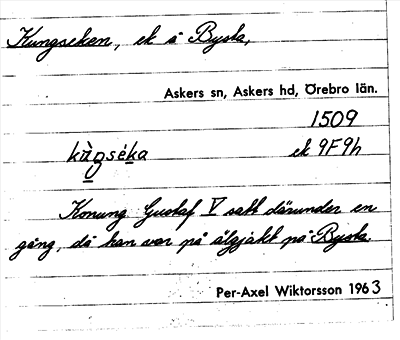 Kungseken, ek å Bysta,
Askers sn, Askers hd, Örebro län.
1509
kàŋséka ek 9F9h
Konung Gustaf V satt därunder en
gång, då han var på älgjakt på Bysta.
Per-Axel Wiktorsson 1963